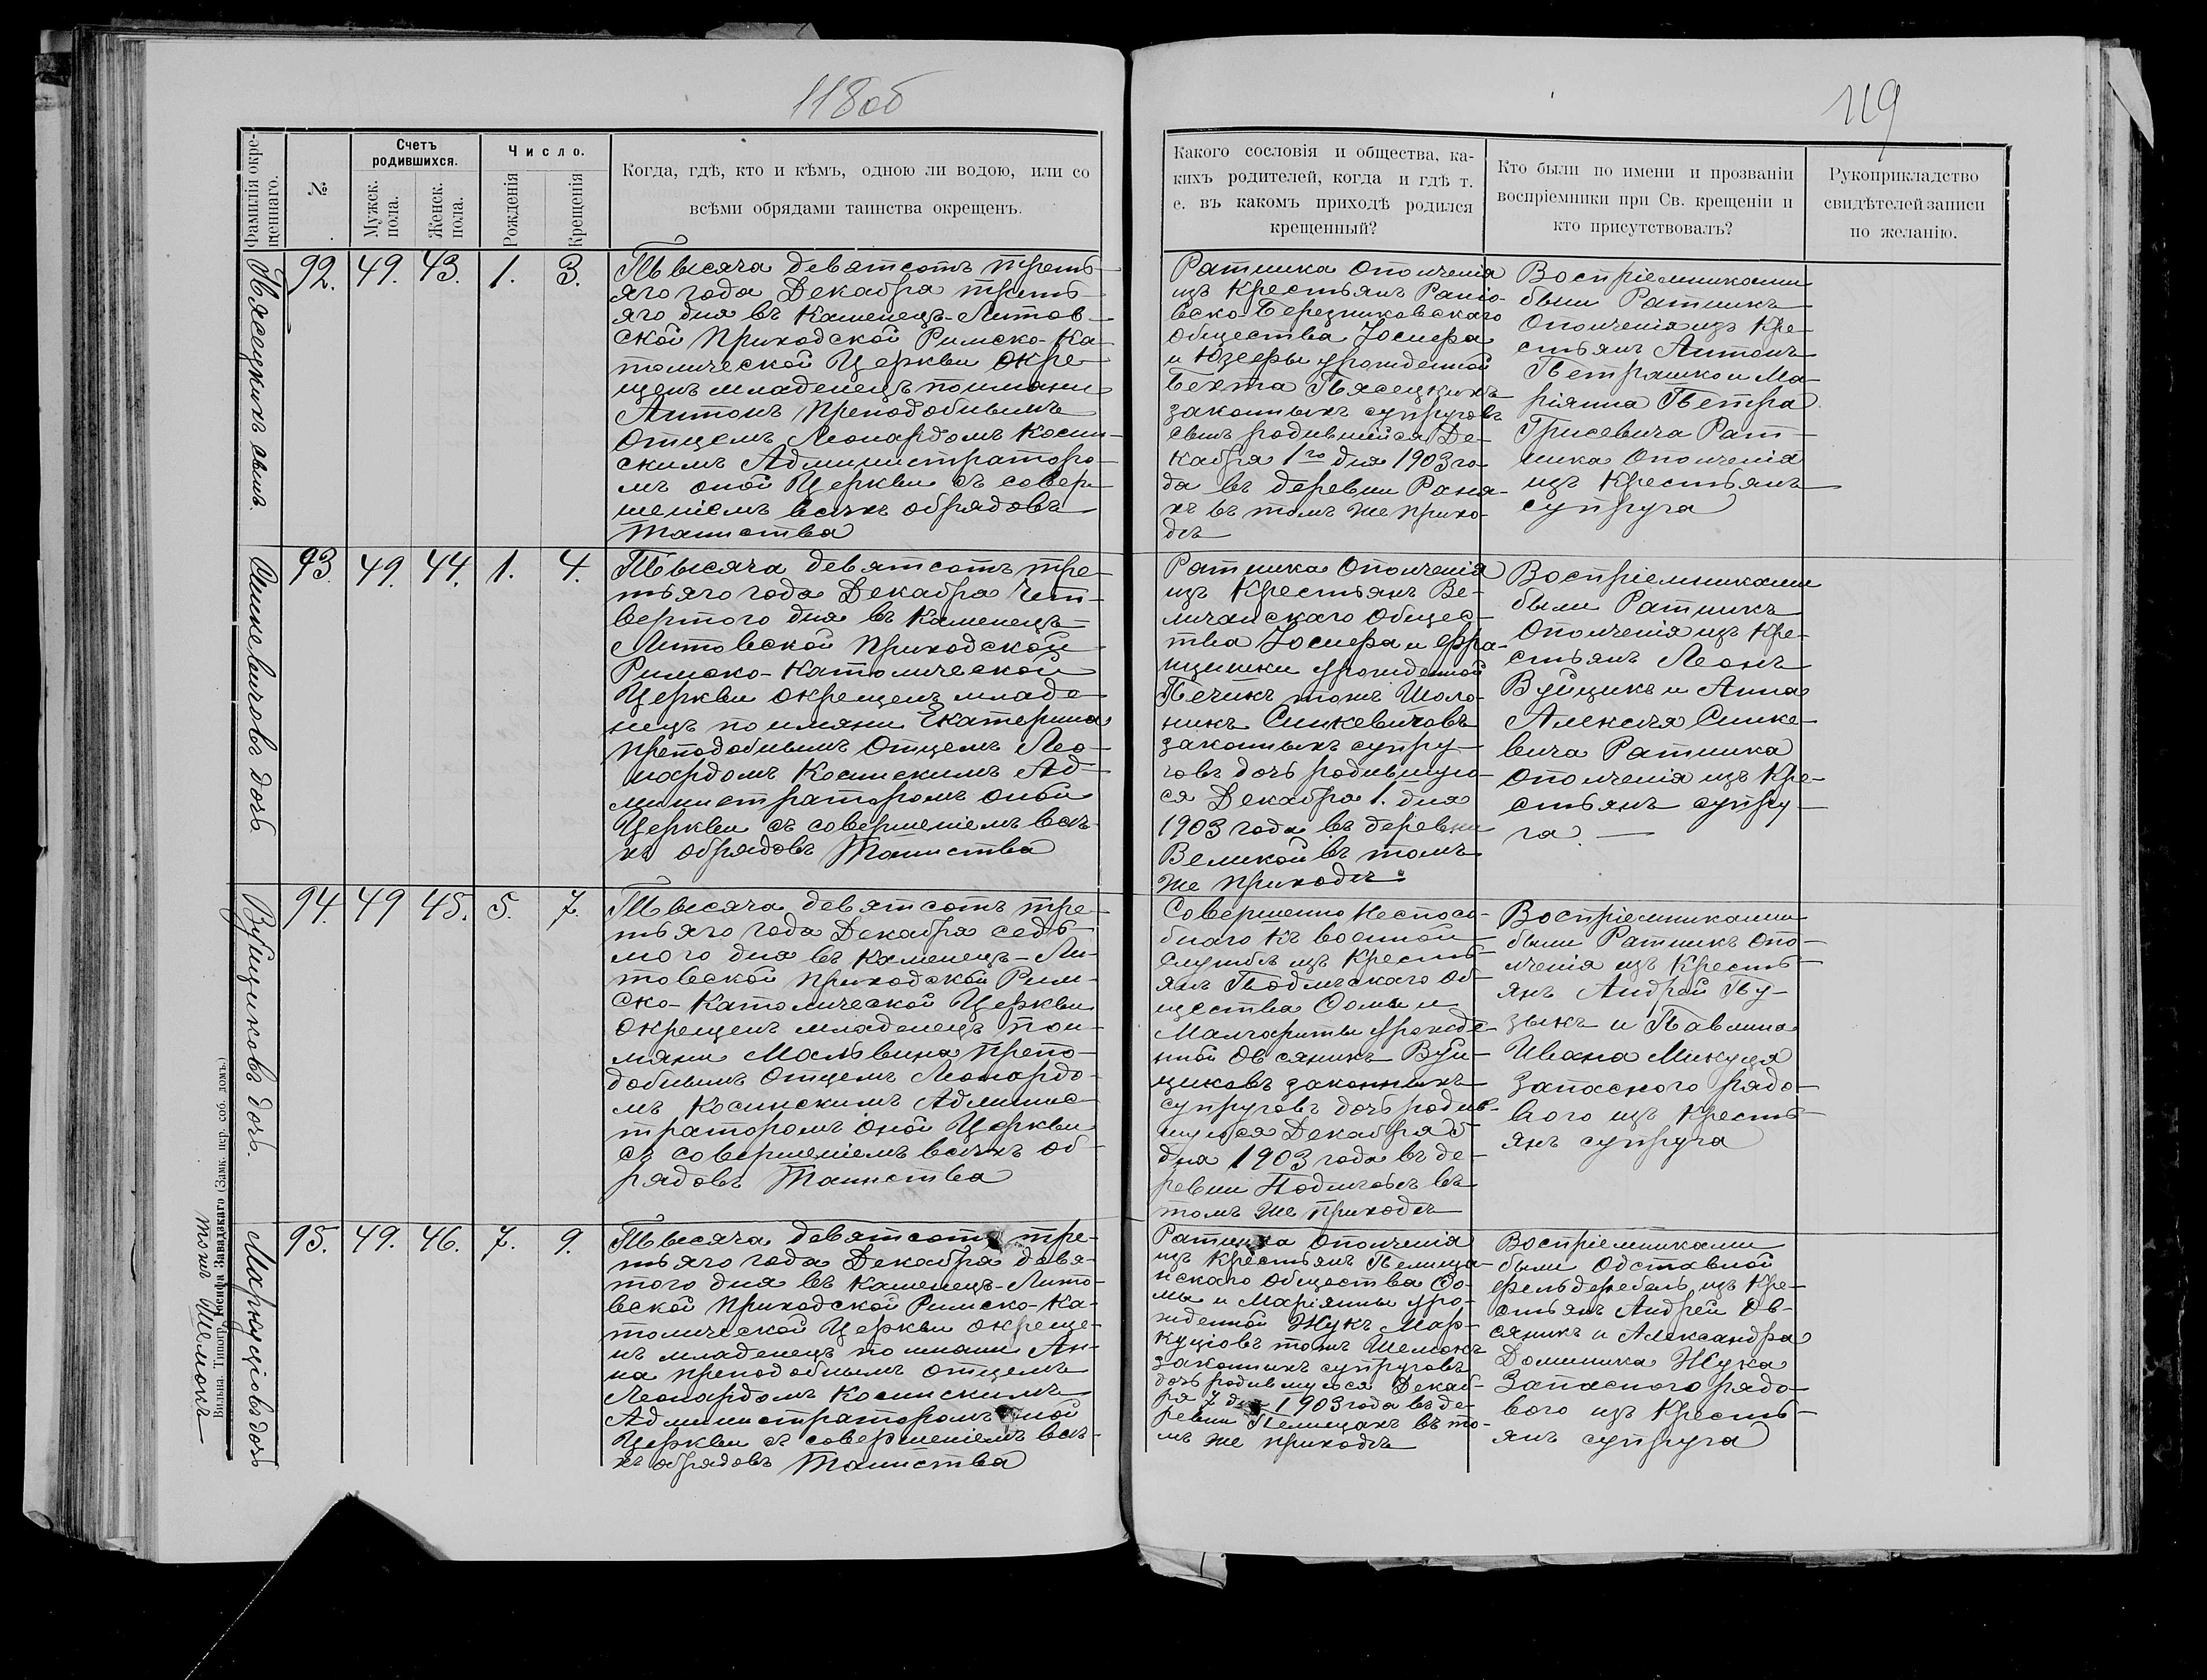 118об
119
Фамилія окре-
щеннаго.
№
Счетъ
родившихся.
Мужск.
пола.
Женск.
пола.
Число.
Рожденія
Крещенія
Когда, гдѣ, кто и кѣмъ, одною ли водою, или со
всѣми обрядами таинства окрещенъ.
Какого сословія и общества, ка-
кихъ родителей, когда и гдѣ т.
е. въ какомъ приходѣ родился
крещенный?
Кто были по имени и прозванію
воспріемники при Св. крещеніи и
кто присутствовалъ?
Рукоприкладство
свидѣтелей записи
по желанію.
Пясецкихъ сынъ.
92. 49. 43. 1. 3.
Тысяча девятсотъ треть-
яго года Декабра треть-
яго дня въ Каменецъ-Литов-
ской Приходской Римско-Ка-
толической Церкви окре-
щенъ младенецъ поимяни
Антонъ преподобнымъ
Отцемъ Леонардомъ Косин-
скимъ Администраторо-
мъ оной Церкви съ совер-
шеніемъ всѣхъ обрядовъ
Таинства
Ратника Ополченія
изъ Крестьянъ Раніо-
вско Березниковскаго
общества Іосифа
и Юзефы урожденной
Бехта Пясецкихъ
законныхъ супруговъ
сынъ родившійся Де-
кабря 1го дня 1903 го-
да въ деревни Раня-
хъ въ томъ же прихо-
дѣ
Воспріемниками
были Ратникъ
Ополченія изъ Кре-
стьянъ Антонъ
Петрашко и Ма-
ріянна Петра
Грисевича Рат-
ника Ополченія
изъ Крестьянъ
супруга
Синкевичовъ дочь.
93. 49. 44. 1. 4.
Тысяча девятсотъ тре-
тьяго года Декабра Чет-
вертого дня въ Каменецъ-
Литовской Приходской
Римско-Католической
Церкви окрещенъ младе-
нецъ по имяни Екатерина
преподобнымъ Отцемъ Лео-
нардомъ Косинскимъ Ад-
министраторомъ оной
Церкви съ совершеніемъ всѣ-
хъ обрядовъ Таинства
Ратника Ополченія
изъ Крестьянъ Ве-
личанскаго Общес-
тва Іосифа и Фра-
нцишки урожденной
Печикъ тожъ Шоло-
никъ Синкевичовъ
законныхъ супру-
говъ дочь родившую-
ся Декабря 1. дня
1903 года въ деревни
Великой въ томъ
же приходѣ
Воспріемниками
были Ратникъ
Ополченія изъ Кре-
стьянъ Леонъ
Вуйцикъ и Анна
Алексѣя Синке-
вича Ратника
Ополченія изъ Кре-
стьянъ супру-
га.
Вуйциковъ дочь.
94. 49 45. 5. 7.
Тысяча девятсотъ тре-
тьяго года Декабря седь-
мого дня въ Каменецъ-Ли-
товской приходской Рим-
ско-Католической Церкви
окрещенъ младенецъ пои-
мяни Мальвина препо-
добнымъ Отцемъ Леонардо-
мъ Косинскимъ Админис-
траторомъ оной Церкви
съ совершеніемъ всѣхъ об-
рядовъ Таинства
Совершенно Неспосо-
бнаго къ военной
службѣ изъ Кресть-
янъ Подлѣскаго Об-
щества Ѳомы и
Малгориты урожде-
нной Овсяникъ Вуй-
циковъ законныхъ
супруговъ дочь родив-
шуюся Декабря 5
дня 1903 года въ де-
ревни въ
томъ же приходѣ
Воспріемниками
были Ратникъ опо-
лченія изъ Кресть-
янъ Андрей Пу-
зыкъ и Павлина
Ивана Микуця
Запасного рядо-
вого изъ Кресть-
янъ супруга
Маркуціовъ дочь
тожъ Шемюкъ
95. 49. 46. 7. 9.
Тысяча девятсотъ тре-
тьяго года Декабря девя-
того дня въ Каменецъ-Лито-
вской приходской Римско-Ка-
толической Церкви окреще-
нъ младенецъ по имяни Ан-
на преподобнымъ отцемъ
Леонардомъ Косинскимъ
Администраторомъ оной
Церкви съ совершеніемъ всѣ-
хъ обрядовъ Таинства
Ратника ополченія
изъ Крестьянъ Пелища-
нскаго общества Ѳо-
мы и Маріянны уро-
жденной Жукъ Мар-
куціовъ тожъ Шемюкъ
законныхъ супруговъ
дочь родившуюся Декаб-
ря 7 дня 1903 года въ де-
ревни Пелищахъ въ то-
мъ же приходѣ
Воспріемниками
были Одставной
фельдфебель изъ Кре-
стьянъ Андрей Ов-
сяникъ и Александра
Доминика Жука
Запасного рядо-
вого изъ Кресть-
янъ супруга
Вильна. Типогр. Іосифа Завадзкаго (Замк. пер. соб. домъ.)